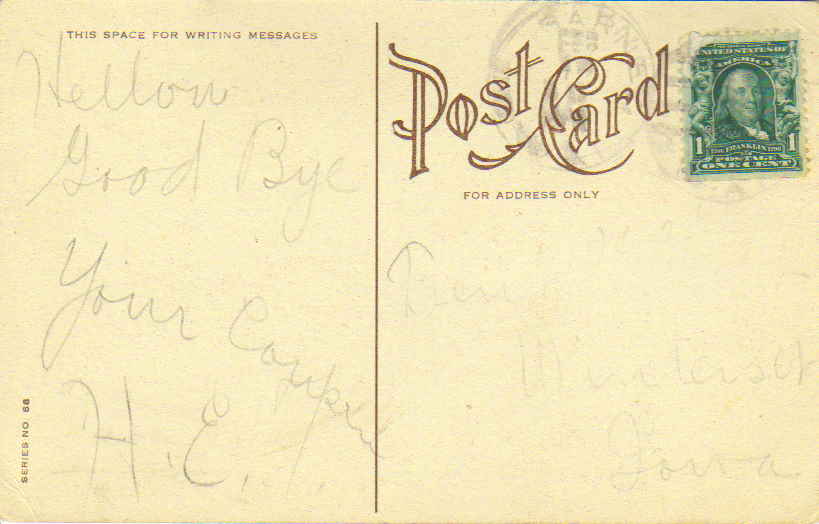 THIS SPACE FOR WRITING MESSAGES
Hellow
Good Bye
Your
H. E. T.
SERIES NO. 68
POST CARD
FOR ADDRESS ONLY
UNITED STATES OF
AMERICA
1 FRANKLIN 1
POSTAGE
ONE CENT
Winterset
Iowa